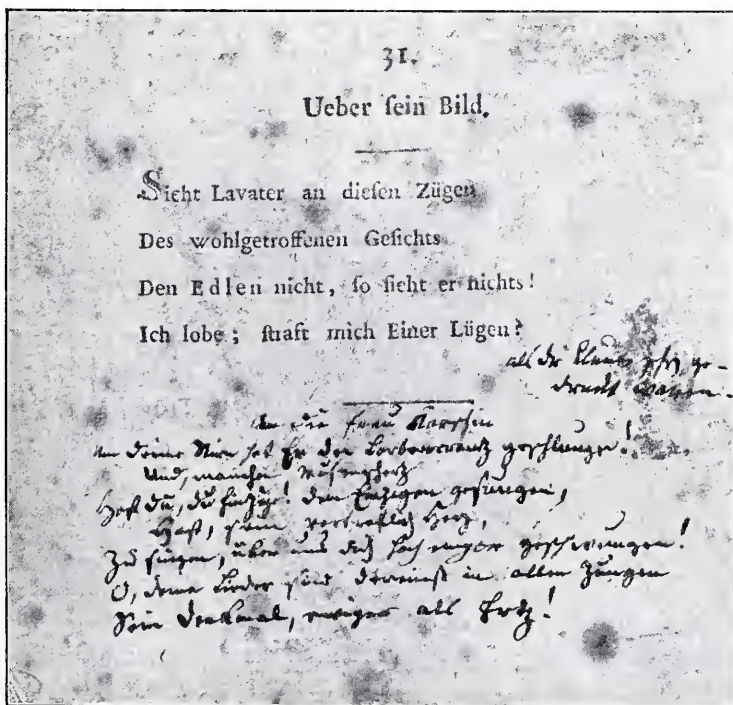 31.
Ueber ſein Bild.
Sieht Lavater an dieſen Zügen
Des wohlgetroffenen Geſichts
Den Edlen nicht, ſo ſieht er nichts!
Ich lobe; ſtraft mich Einer Lügen?
als die
druckt waren.
An die Frau Karſchin
Um Deine Stirn hat Er den Lorbeercrantz geſchlungen!
Und, manchen
Haſt Du, Du Einzige! dem Einzigen geſungen,
Haſt, ſein vortreflich Hertz,
Zu ſingen, über uns Dich hoch empor geſchwungen!
O, deine Lieder ſind dereinſt in allen Zungen
Sein Denkmal, ewiger als Ertz!